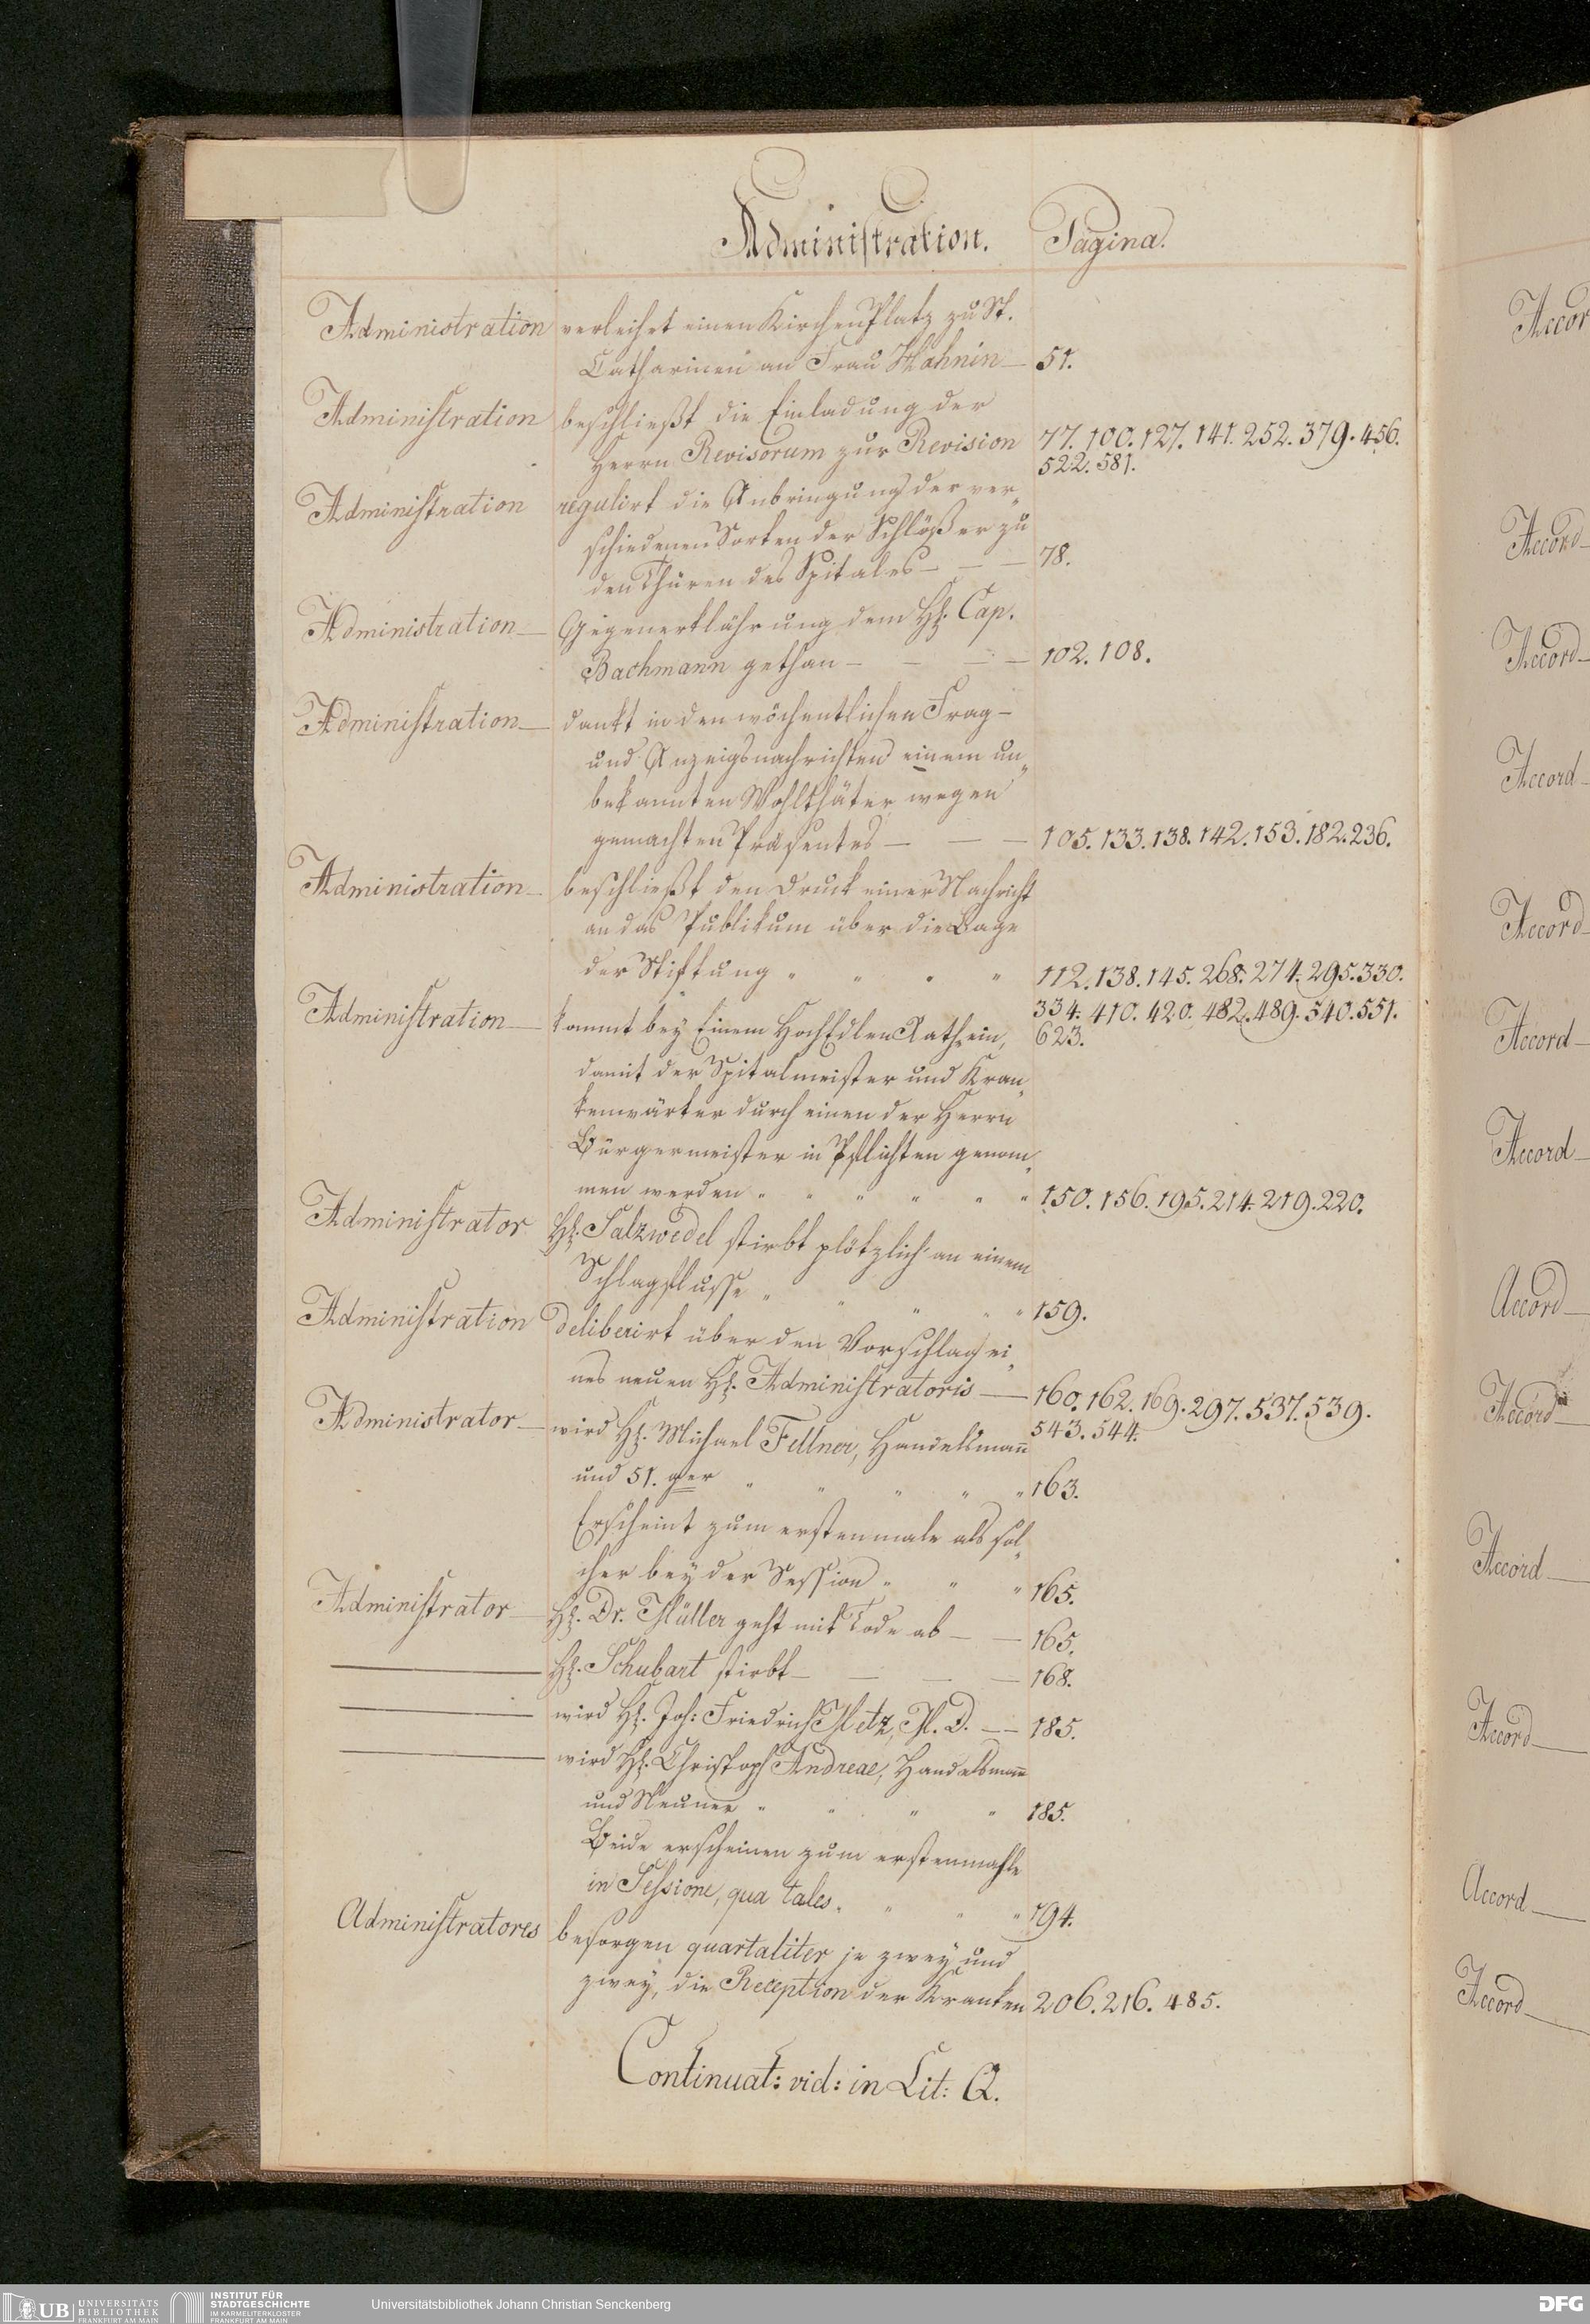 Administration. Pagina.
Administration verleihet einen Kirchen Platz zu St.
Catharinen an Frau Hahnin — 51.
Administration beschließt die Einladung der
Herrn Revisorum zur Revision 77. 100. 127. 141. 252. 379. 456.
522. 581.
Administration regulirt die Anbringung der ver„
schiedenen Sorten der Schlößer zu
den Thüren des Spitales — — — 78.
Administration — Gegenerklährung dem H. Cap.
Bachmann gethan — — — — 102. 108.
Administration — dankt in den wöchentlichen Frag-
und Anzeigsnachrichten einem un„
bekannten Wohlthäter wegen
gemachten Präsentes — — — 105. 133. 138. 142. 153. 182. 236.
Administration — beschließt den Druck einer Nachricht
an das Publikum über die Lage
der Stiftung " " " " 112. 138. 145. 268. 274. 295. 330.
334. 410. 420. 482. 489. 540. 551.
Administration — kommt bey Einem HochEdlen Rath ein, 623.
damit der Spitalmeister und Kran„
kenwärter durch einen der Herrn
Bürgermeister in Pflichten genom„
men werden " " " " " " 150. 156. 195. 214. 219. 220.
Administrator H. Salzwedel stirbt plötzlich an einem
Schlagflusse " " " " " 159.
Administration deliberirt über den Vorschlag ei„
nes neuen H. Administratoris — 160. 162. 169. 297. 537. 539.
543. 544.
Administrator — wird H. Michael Fellner, Handelsmañ
und 51.ger " " " " " 163.
Erscheint zum erstenmale als sol„
cher bey der Session " " " 165.
Administrator — H. Dr. Müller geht mit Tode ab — — 165.
— H. Schubart stirbt — — — — 168.
— wird H. Joh: Friedrich Metz, M. D. — — 185.
— wird H. Christoph Andreae, Handelsmañ
und Neuner " " " " 185.
Beide erscheinen zum erstenmahle
in Sessione, qua tales. " " " 194.
Administratores besorgen quartaliter je zwey und
zwey, die Reception der Kranken 206. 216. 485.
Continuat: vid: in Lit: Q.
Accord
Accord —
Accord —
Accord —
Accord —
Accord —
Accord —
Accord —
Accord —
Accord —
Accord —
Accord —
Accord —
UB UNIVERSITÄTS
BIBLIOTHEK
FRANKFURT AM MAIN
INSTITUT FÜR
STADTGESCHICHTE
IM KARMELITERKLOSTER
FRANKFURT AM MAIN
Universitätsbibliothek Johann Christian Senckenberg
DFG